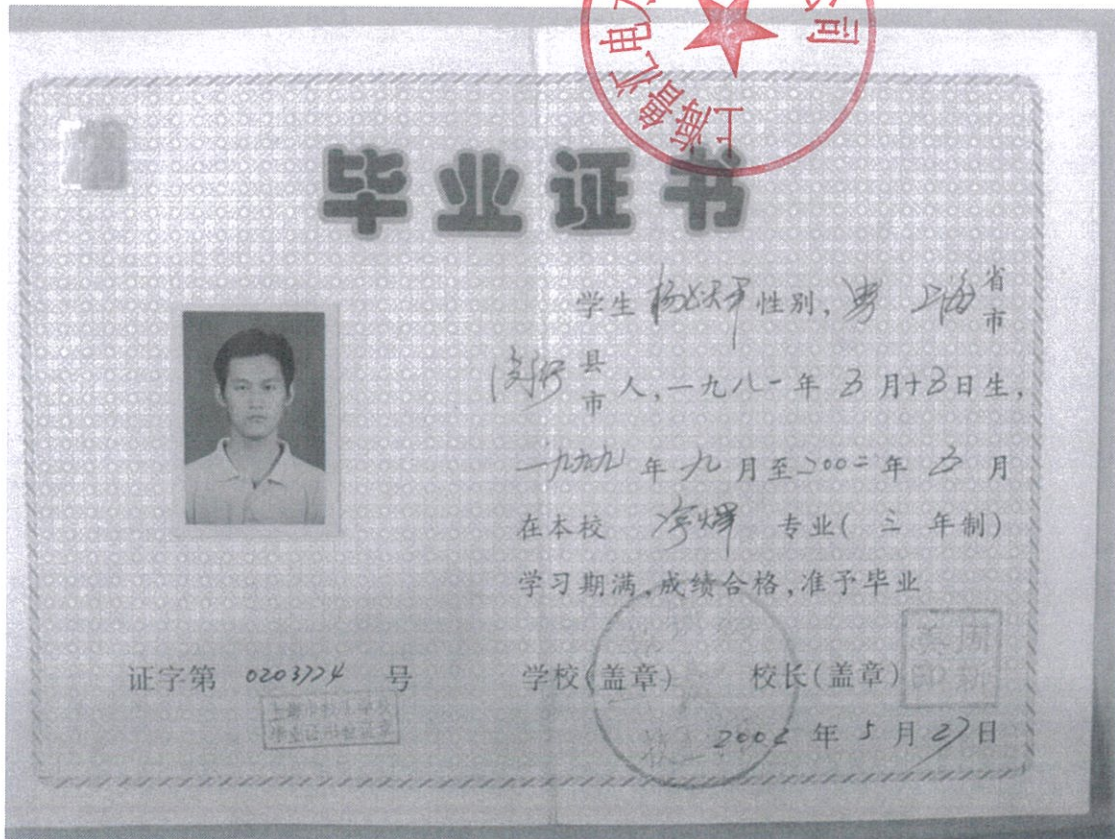 上海鲁汇电力 公司
毕业证书
学生 杨 平 性别, 男 上海 省市
闵行 县市 人, 一九八一 年 五 月 十五 日生,
一九九九 年 九 月至 二00二 年 五 月
在本校 专业( 三 年制)
学习期满,成绩合格,准予毕业
证字第 0203724 号 学校(盖章) 校长(盖章)
2002 年 5 月 27 日